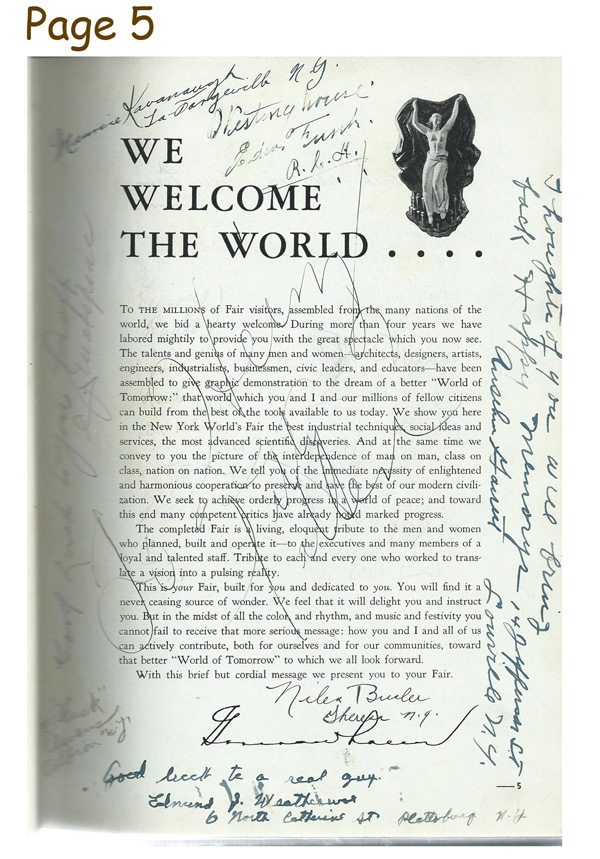 Page 5
Kavanaugh
N.Y.
Westinghouse
WE
WELCOME
THE WORLD . . . .
TO THE MILLIONS of Fair visitors, assembled from the many nations of the
world, we bid a hearty welcome. During more than four years we have
labored mightily to provide you with the great spectacle which you now see.
The talents and genius of many men and women—architects, designers, artists,
engineers, industrialists, businessmen, civic leaders, and educators—have been
assembled to give graphic demonstration to the dream of a better “World of
Tomorrow:” that world which you and I and our millions of fellow citizens
can build from the best of the tools available to us today. We show you here
in the New York World’s Fair the best industrial techniques, social ideas and
services, the most advanced scientific discoveries. And at the same time we
convey to you the picture of the interdependence of man on man, class on
class, nation on nation. We tell you of the immediate necessity of enlightened
and harmonious cooperation to preserve and save the best of our modern civili-
zation. We seek to achieve orderly progress in a world of peace; and toward
this end many competent critics have already noted marked progress.
The completed Fair is a living, eloquent tribute to the men and women
who planned, built and operate it—to the executives and many members of a
loyal and talented staff. Tribute to each and every one who worked to trans-
late a vision into a pulsing reality.
This is your Fair, built for you and dedicated to you. You will find it a
never ceasing source of wonder. We feel that it will delight you and instruct
you. But in the midst of all the color, and rhythm, and music and festivity you
cannot fail to receive that more serious message: how you and I and all of us
can actively contribute, both for ourselves and for our communities, toward
that better “World of Tomorrow” to which we all look forward.
With this brief but cordial message we present you to your Fair.
Thoughts of you will bring
back Happy Memorys
Niles
Theresa N.Y.
Good luck to a real guy.
Edmund J.
6 North Catherine St Plattsburg N.Y.
5